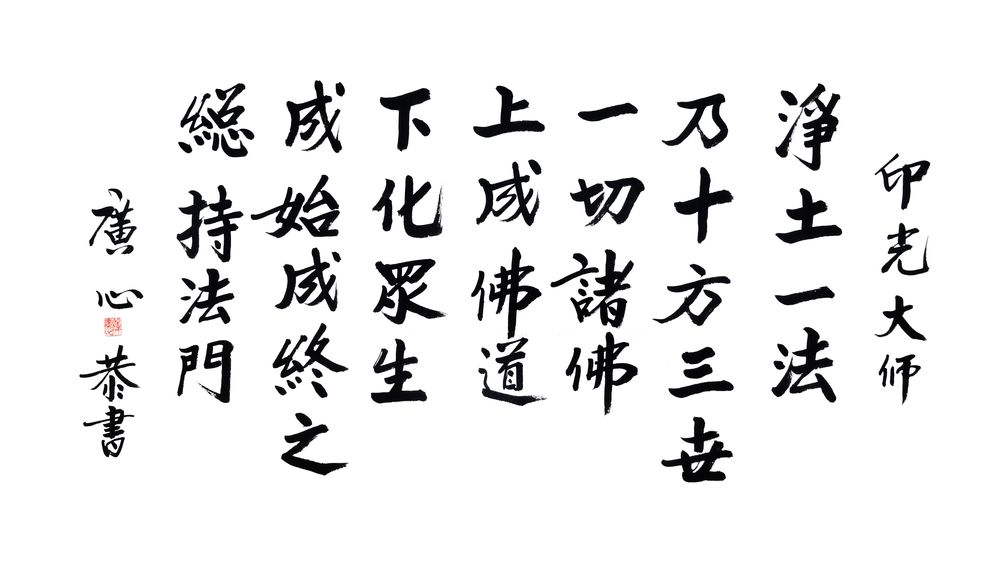 印光大师
淨土一法
乃十方三世
一切諸佛
上成佛道
下化眾生
成始成終之
總持法門
廣心
恭書